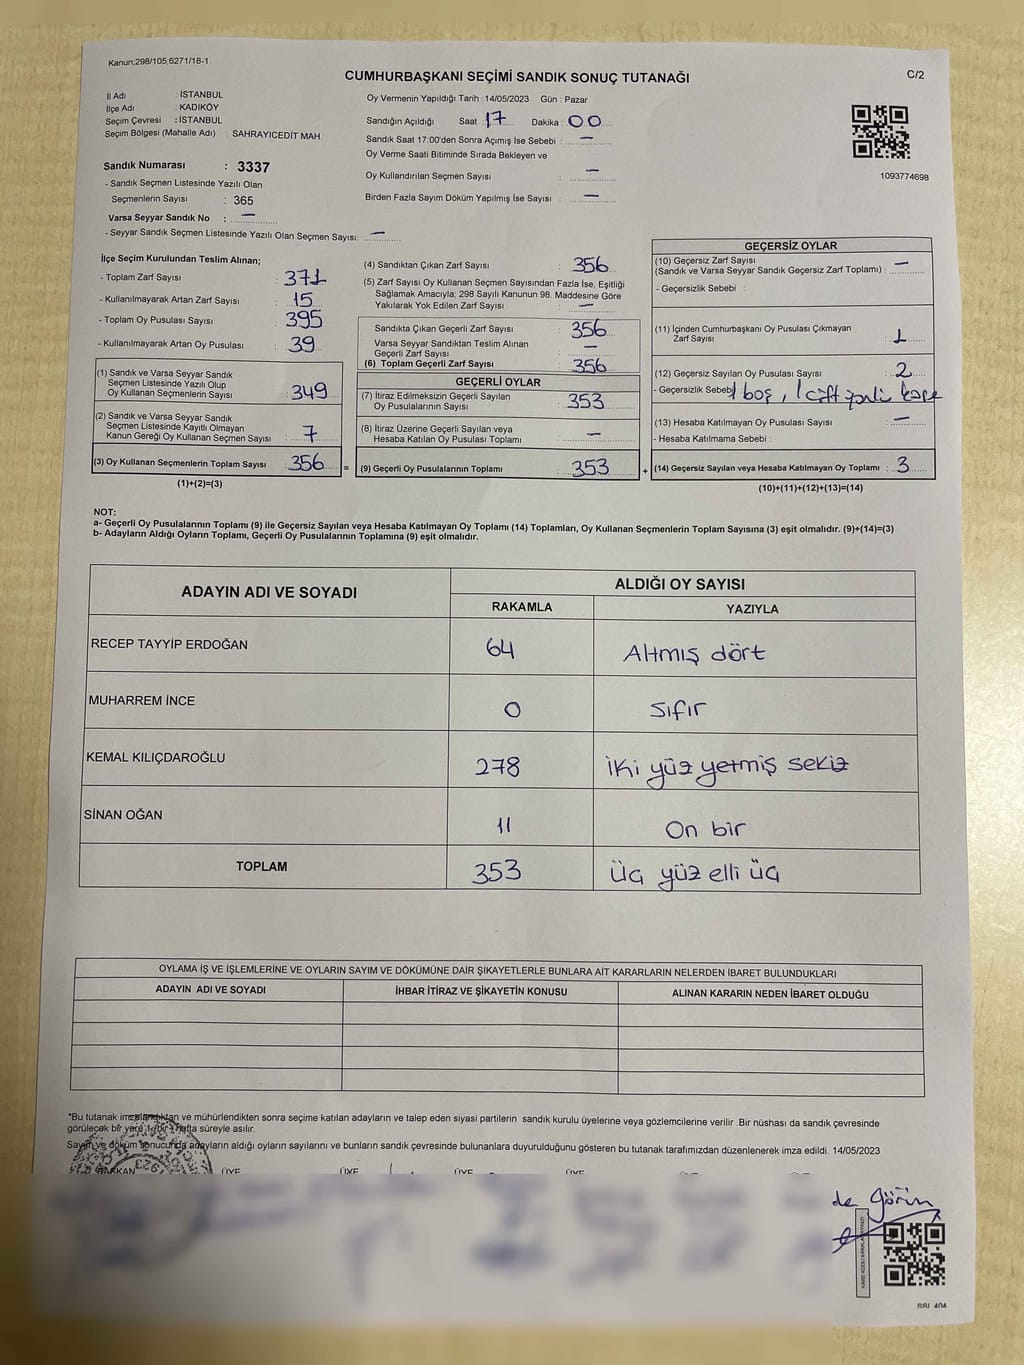 Kanun;298/105;6271/18-1
CUMHURBAŞKANI SEÇİMİ SANDIK SONUÇ TUTANAĞI
C/2
İl Adı : İSTANBUL
İlçe Adı : KADIKÖY
Seçim Çevresi : İSTANBUL
Seçim Bölgesi (Mahalle Adı) : SAHRAYICEDİT MAH.
Sandık Numarası : 3337
- Sandık Seçmen Listesinde Yazılı Olan
Seçmenlerin Sayısı : 365
Varsa Seyyar Sandık No : —
- Seyyar Sandık Seçmen Listesinde Yazılı Olan Seçmen Sayısı: —
Oy Vermenin Yapıldığı Tarih : 14/05/2023 Gün : Pazar
Sandığın Açıldığı Saat 17 Dakika : 00
Sandık Saat 17:00'den Sonra Açımış İse Sebebi : —
Oy Verme Saati Bitiminde Sırada Bekleyen ve
Oy Kullandırılan Seçmen Sayısı : —
Birden Fazla Sayım Döküm Yapılmış İse Sayısı : —
1093774698
İlçe Seçim Kurulundan Teslim Alınan;
- Toplam Zarf Sayısı : 371
- Kullanılmayarak Artan Zarf Sayısı : 15
- Toplam Oy Pusulası Sayısı : 395
- Kullanılmayarak Artan Oy Pusulası : 39
(1) Sandık ve Varsa Seyyar Sandık
Seçmen Listesinde Yazılı Olup
Oy Kullanan Seçmenlerin Sayısı : 349
(2) Sandık ve Varsa Seyyar Sandık
Seçmen Listesinde Kayıtlı Olmayan
Kanun Gereği Oy Kullanan Seçmen Sayısı : 7
(3) Oy Kullanan Seçmenlerin Toplam Sayısı : 356 =
(1)+(2)=(3)
(4) Sandıktan Çıkan Zarf Sayısı : 356
(5) Zarf Sayısı Oy Kullanan Seçmen Sayısından Fazla İse, Eşitliği
Sağlamak Amacıyla; 298 Sayılı Kanunun 98. Maddesine Göre
Yakılarak Yok Edilen Zarf Sayısı : —
Sandıkta Çıkan Geçerli Zarf Sayısı : 356
Varsa Seyyar Sandıktan Teslim Alınan
Geçerli Zarf Sayısı : —
(6) Toplam Geçerli Zarf Sayısı : 356
GEÇERLİ OYLAR
(7) İtiraz Edilmeksizin Geçerli Sayılan
Oy Pusulalarının Sayısı : 353
(8) İtiraz Üzerine Geçerli Sayılan veya
Hesaba Katılan Oy Pusulası Toplamı : —
(9) Geçerli Oy Pusulalarının Toplamı : 353 +
GEÇERSİZ OYLAR
(10) Geçersiz Zarf Sayısı
(Sandık ve Varsa Seyyar Sandık Geçersiz Zarf Toplamı) : —
- Geçersizlik Sebebi :
(11) İçinden Cumhurbaşkanı Oy Pusulası Çıkmayan
Zarf Sayısı : 1
(12) Geçersiz Sayılan Oy Pusulası Sayısı : 2
- Geçersizlik Sebebi 1 boş, 1 çift
(13) Hesaba Katılmayan Oy Pusulası Sayısı : —
- Hesaba Katılmama Sebebi :
(14) Geçersiz Sayılan veya Hesaba Katılmayan Oy Toplamı : 3
(10)+(11)+(12)+(13)=(14)
NOT:
a- Geçerli Oy Pusulalarının Toplamı (9) ile Geçersiz Sayılan veya Hesaba Katılmayan Oy Toplamı (14) Toplamları, Oy Kullanan Seçmenlerin Toplam Sayısına (3) eşit olmalıdır. (9)+(14)=(3)
b- Adayların Aldığı Oyların Toplamı, Geçerli Oy Pusulalarının Toplamına (9) eşit olmalıdır.
ADAYIN ADI VE SOYADI ALDIĞI OY SAYISI
RAKAMLA YAZIYLA
RECEP TAYYİP ERDOĞAN 64 Altmış dört
MUHARREM İNCE 0 sıfır
KEMAL KILIÇDAROĞLU 278 iki yüz yetmiş sekiz
SİNAN OĞAN 11 On bir
TOPLAM 353 üç yüz elli üç
OYLAMA İŞ VE İŞLEMLERİNE VE OYLARIN SAYIM VE DÖKÜMÜNE DAİR ŞİKAYETLERLE BUNLARA AİT KARARLARIN NELERDEN İBARET BULUNDUKLARI
ADAYIN ADI VE SOYADI İHBAR İTİRAZ VE ŞİKAYETİN KONUSU ALINAN KARARIN NEDEN İBARET OLDUĞU
*Bu tutanak imzalandıktan ve mühürlendikten sonra seçime katılan adayların ve talep eden siyasi partilerin sandık kurulu üyelerine veya gözlemcilerine verilir. Bir nüshası da sandık çevresinde
görülecek bir yere 1 (bir) hafta süreyle asılır.
Sayım ve döküm sonucunda adayların aldığı oyların sayılarını ve bunların sandık çevresinde bulunanlara duyurulduğunu gösteren bu tutanak tarafımızdan düzenlenerek imza edildi. 14/05/2023
BAŞKAN ÜYE ÜYE ÜYE ÜYE
de Görün